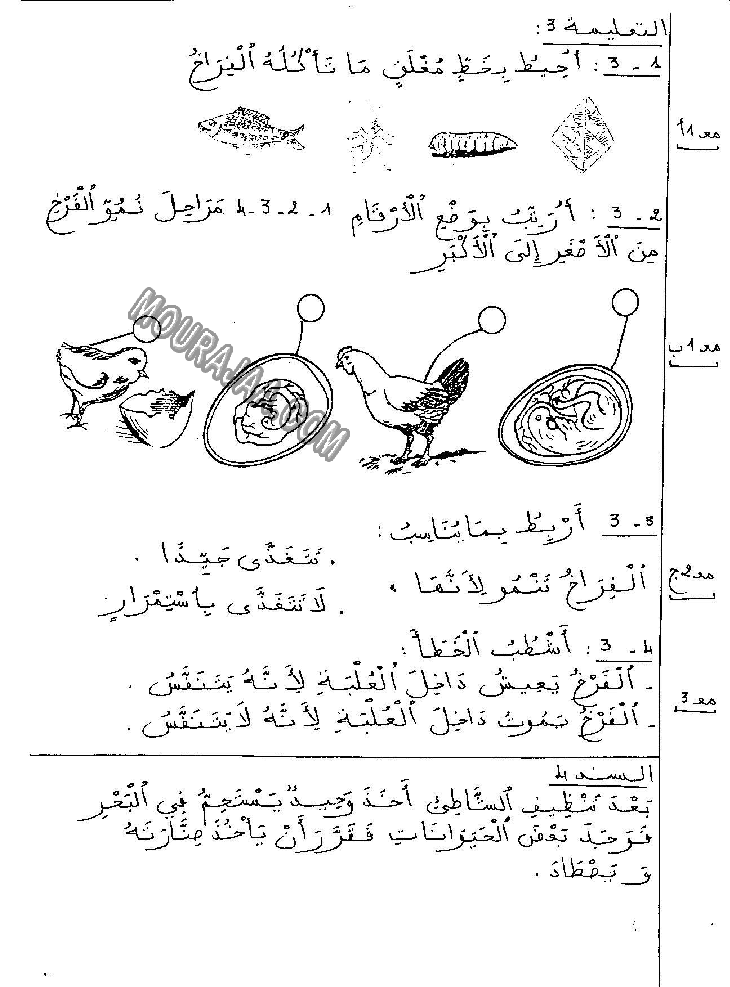 التعليمة 3:
3 - 1 : أُحِيطُ بِخَطٍّ مُغْلَقٍ مَا تَأْكُلُهُ الْفِرَاخُ
معـ 1أ
3 - 2 : أُرَتِّبُ بِوَضْعِ الْأَرْقَامِ 1 - 2 - 3 - 4 مَرَاحِلَ نُمُوِّ الْفَرْخِ
مِنَ الْأَصْغَرِ إِلَى الْأَكْبَرِ
معـ 1ب
MOURAJAA.COM
3 - 3 أَرْبِطُ بِمَا يُنَاسِبُ :
. تَتَغَذَّى جَيِّدًا .
الْفِرَاخُ تَنْمُو لِأَنَّهَا
معـ 2ج
. لَا تَتَغَذَّى بِاسْتِمْرَارٍ
3 - 4 : أَشْطُبُ الْخَطَأَ :
- الْفَرْخُ يَعِيشُ دَاخِلَ الْعُلْبَةِ لِأَنَّهُ يَتَنَفَّسُ .
- الْفَرْخُ يَمُوتُ دَاخِلَ الْعُلْبَةِ لِأَنَّهُ لَا يَتَنَفَّسُ .
معـ 3
السند 4
بَعْدَ تَنْظِيفِ الشَّاطِئِ أَخَذَ وَحِيدٌ يَسْتَحِمُّ فِي الْبَحْرِ
فَوَجَدَ بَعْضَ الْحَيَوَانَاتِ فَقَرَّرَ أَنْ يَأْخُذَ صِنَّارَتَهُ
وَ يَصْطَادَ .